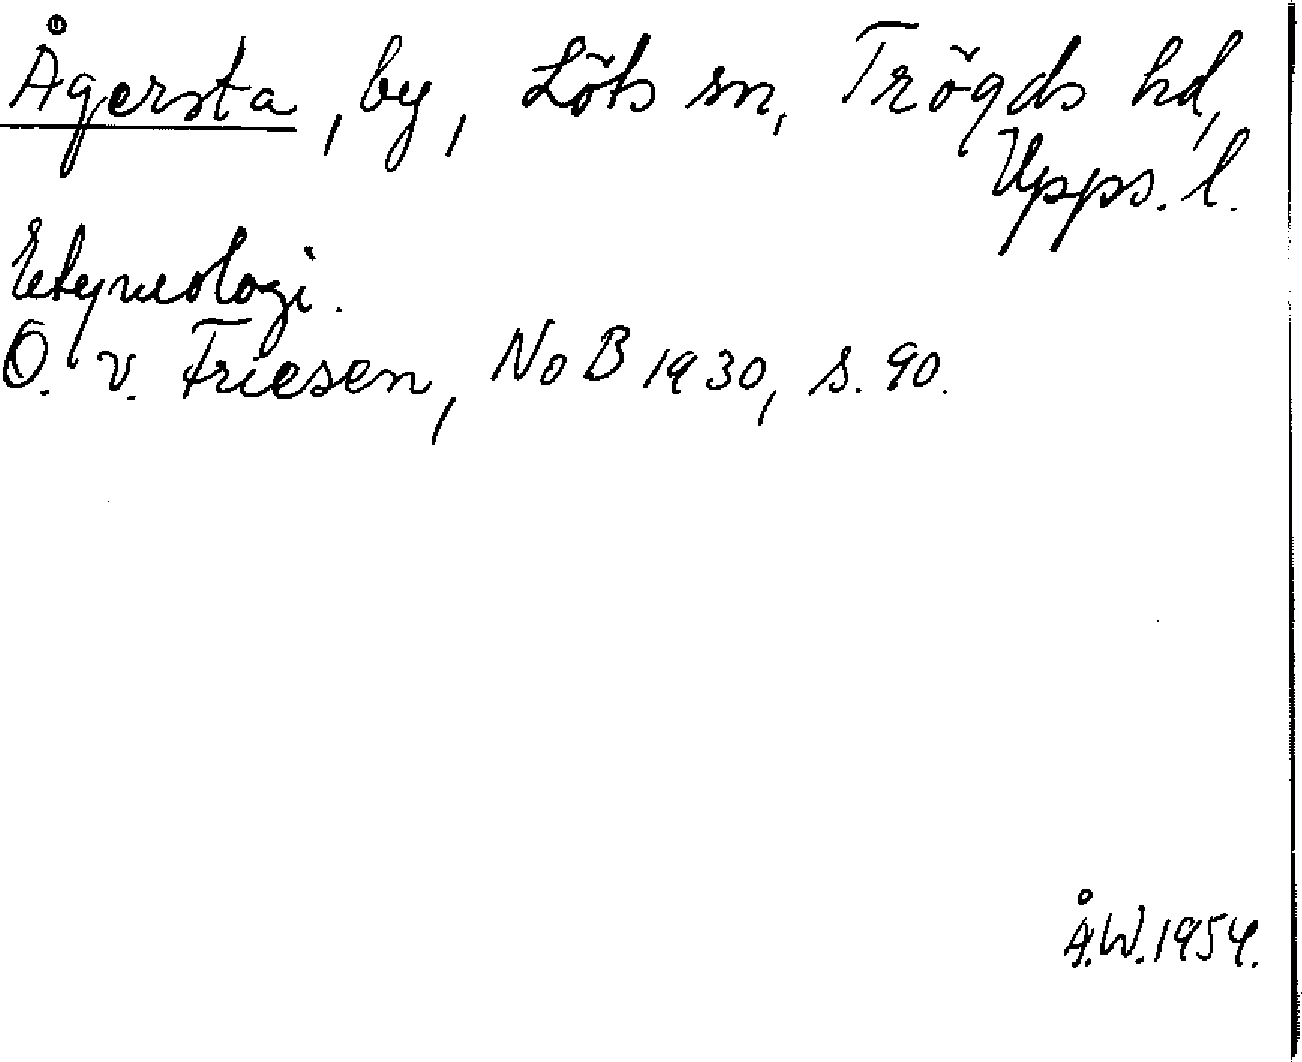 Ågersta, by, Löts sn, Trögds hd,
Upps. l.
Etymologi.
O. v. Friesen, NoB 1930, s. 90.
Å.W. 1954.